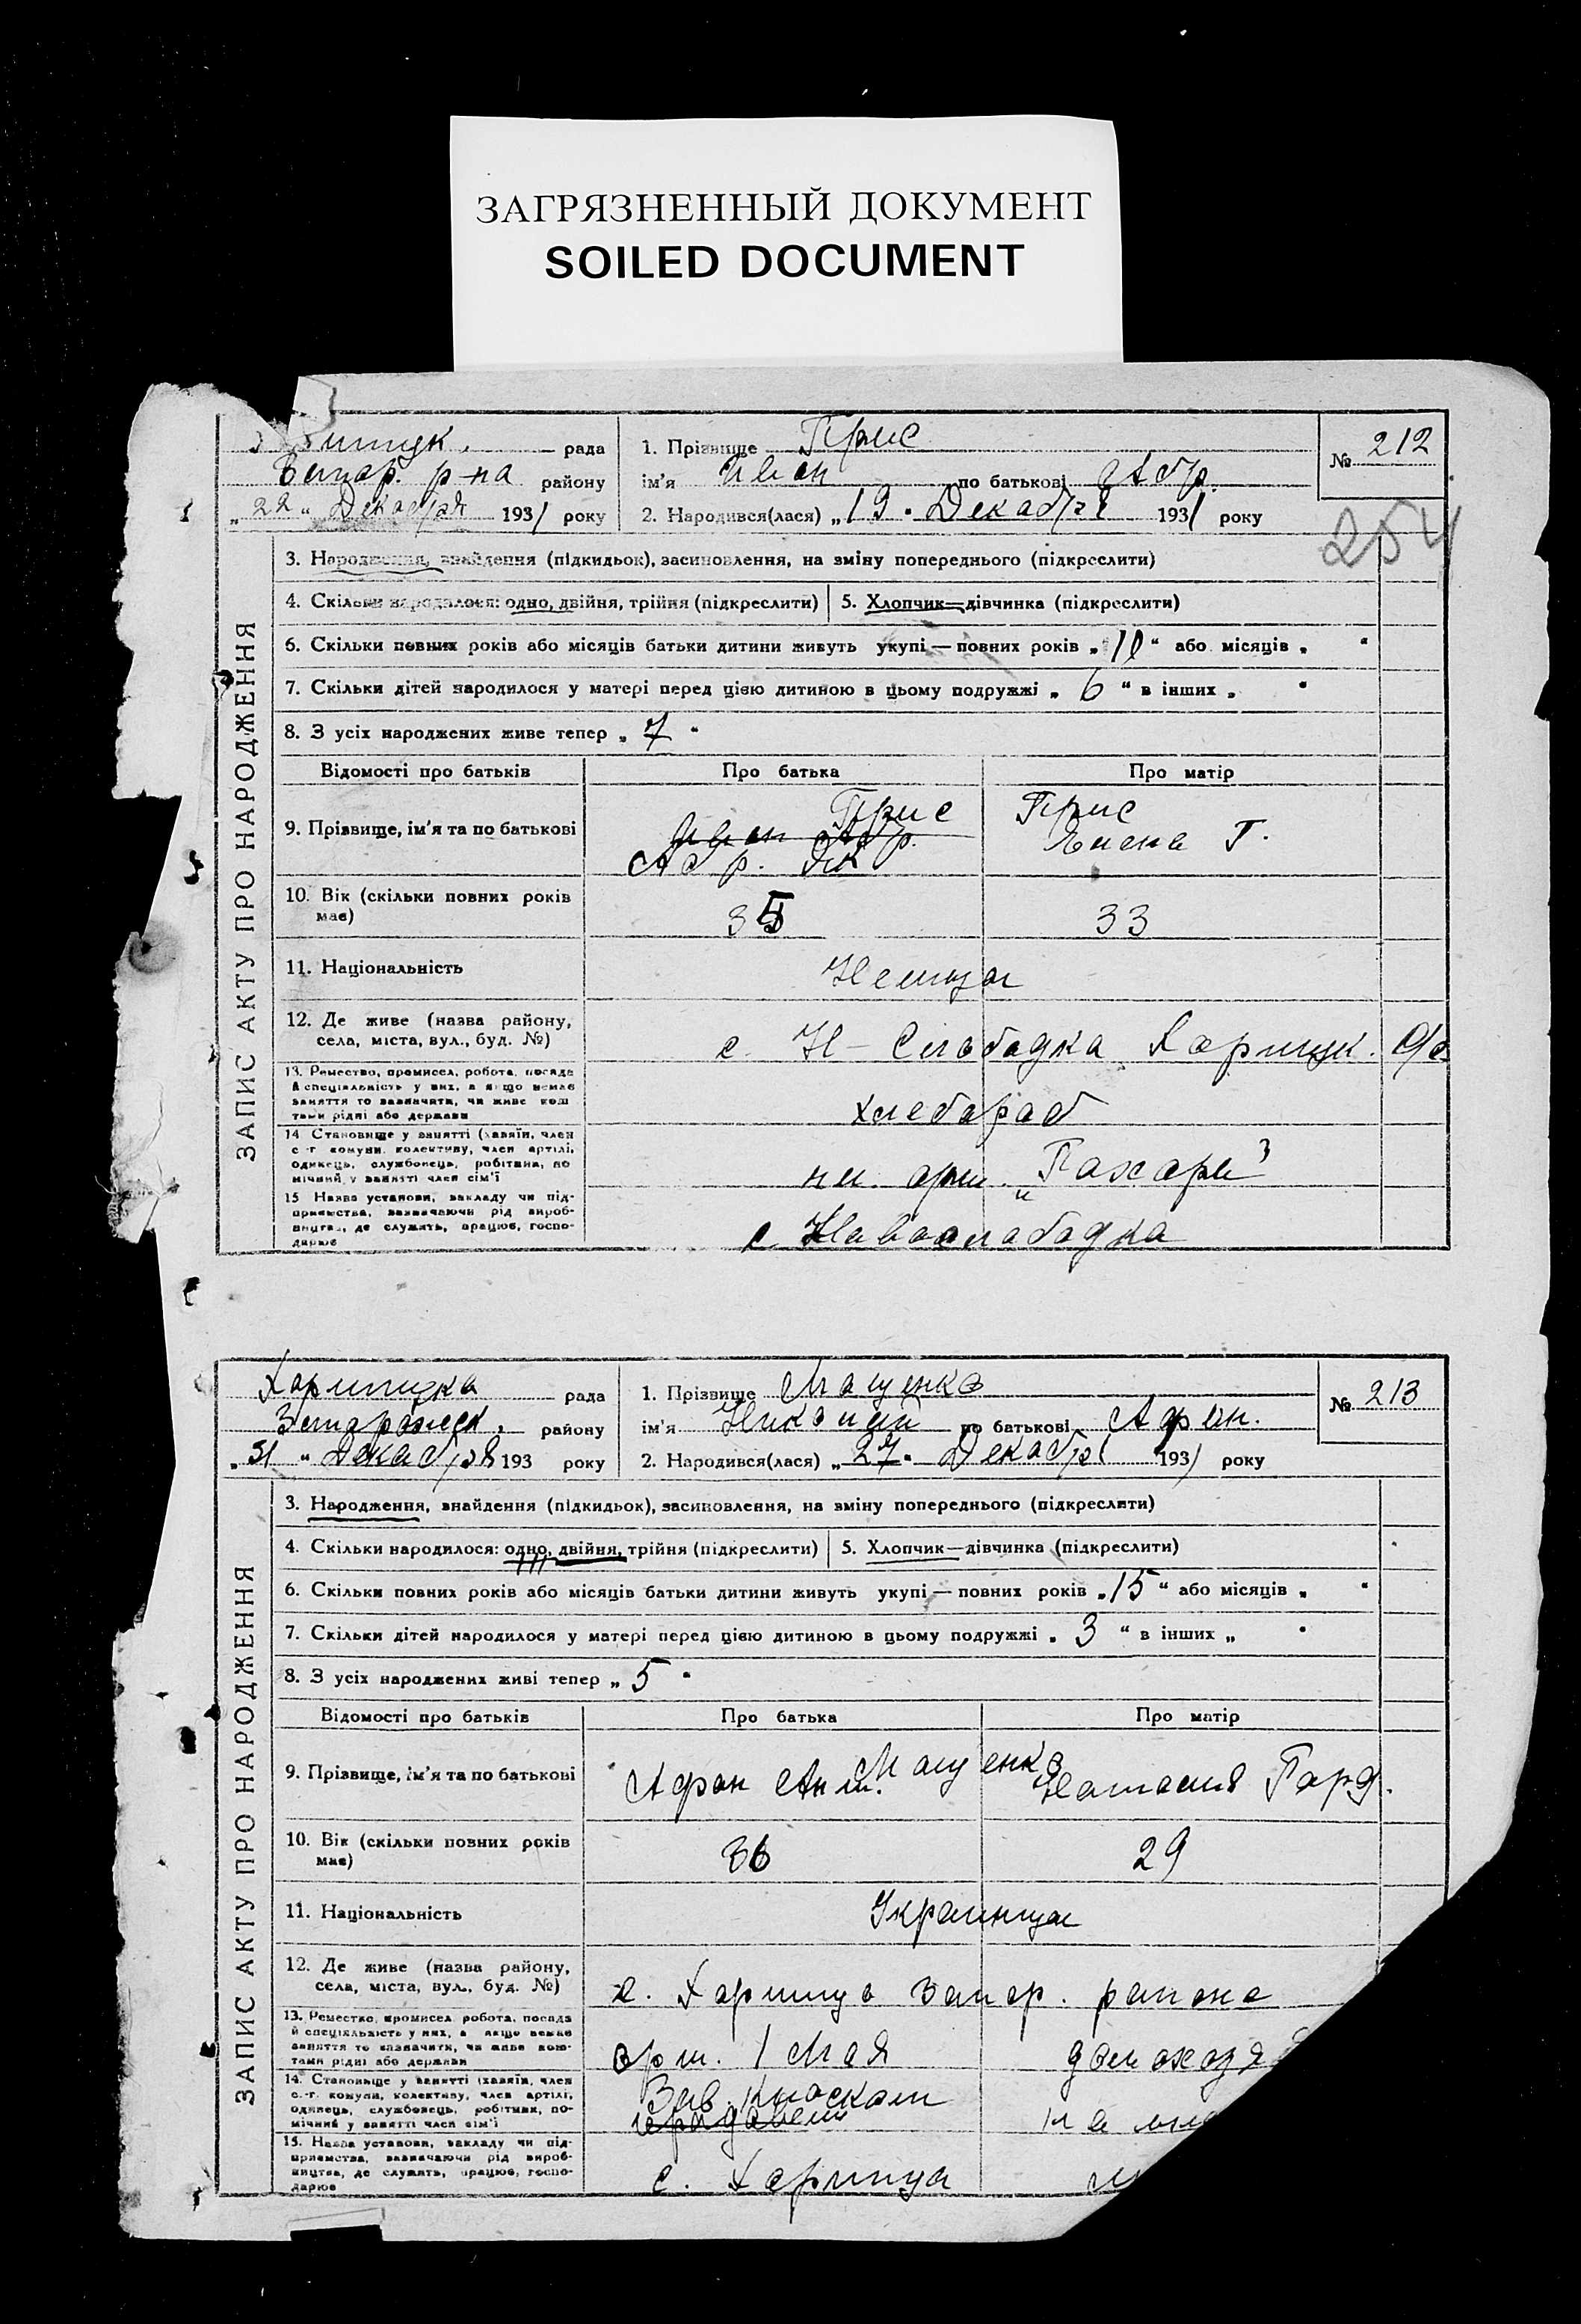 ЗАГРЯЗНЕННЫЙ ДОКУМЕНТ
SOILED DOCUMENT
рада
Запор. р-на району
„22“ Декабря 1931 року
1. Прізвище Прис
ім'я Иван по батькові Абр.
2. Народився(лася) „19“ Декабря 1931 року
№ 212
254
ЗАПИС АКТУ ПРО НАРОДЖЕННЯ
3. Народження, знайдення (підкидьок), засиновлення, на зміну попереднього (підкреслити)
4. Скільки народилося: одно, двійня, трійня (підкреслити)
5. Хлопчик—дівчинка (підкреслити)
6. Скільки повних років або місяців батьки дитини живуть укупі—повних років „10“ або місяців „ “
7. Скільки дітей народилося у матері перед цією дитиною в цьому подружжі „6“ в інших „ “
8. З усіх народжених живе тепер „7“
Відомості про батьків
Про батька
Про матір
9. Прізвище, ім'я та по батькові
Прис
Иван Абр.
Абр. Як
Прис
Елена Г.
10. Вік (скільки повних років має)
35
33
11. Національність
Немцы
12. Де живе (назва району, села, міста, вул., буд. №)
с. Н-Слободка Хортицк. с/с
13. Ремество, промисел, робота, посада й спеціяльність у них, а якщо немає заняття то зазначити, чи живе коштами рідні або держави
хлебороб
14. Становище у занятті (хазяїн, член с.-г. комуни, колективу, член артілі, одинець, службовець, робітник, помічний у занятті член сім'ї
чл. арт. „Пахарь“
15. Назва установи, закладу чи підприємства, зазначаючи рід виробництва, де служить, працює, господарює
с. Новослободка
Хортицка рада
Запорожск. району
„31“ Декабря 193 року
1. Прізвище Мащенко
ім'я Николай по батькові Афан.
2. Народився(лася) „27“ Декабря 1931 року
№ 213
ЗАПИС АКТУ ПРО НАРОДЖЕННЯ
3. Народження, знайдення (підкидьок), засиновлення, на зміну попереднього (підкреслити)
4. Скільки народилося: одно, двійня, трійня (підкреслити)
5. Хлопчик—дівчинка (підкреслити)
6. Скільки повних років або місяців батьки дитини живуть укупі—повних років „15“ або місяців „ “
7. Скільки дітей народилося у матері перед цією дитиною в цьому подружжі „3“ в інших „ “
8. З усіх народжених живі тепер „5“
Відомості про батьків
Про батька
Про матір
9. Прізвище, ім'я та по батькові
Мащенко
Афан Ант.
Наталия Горд.
10. Вік (скільки повних років має)
36
29
11. Національність
Украинцы
12. Де живе (назва району, села, міста, вул., буд. №)
с. Хортица Запор. района
13. Ремество, промисел робота, посада й спеціяльність у них, а якщо немає заняття то зазначити, чи живе коштами рідні або держави
арт. 1 Мая
домохозя
14. Становище у занятті (хазяїн, член с.-г. комуни, колективу, член артілі, одинець, службовець, робітник, помічний у занятті член сім'ї
Зав. киоском
продавец
15. Назва установи, закладу чи підприємства, зазначаючи рід виробництва, де служить, працює, господарює
с. Хортица